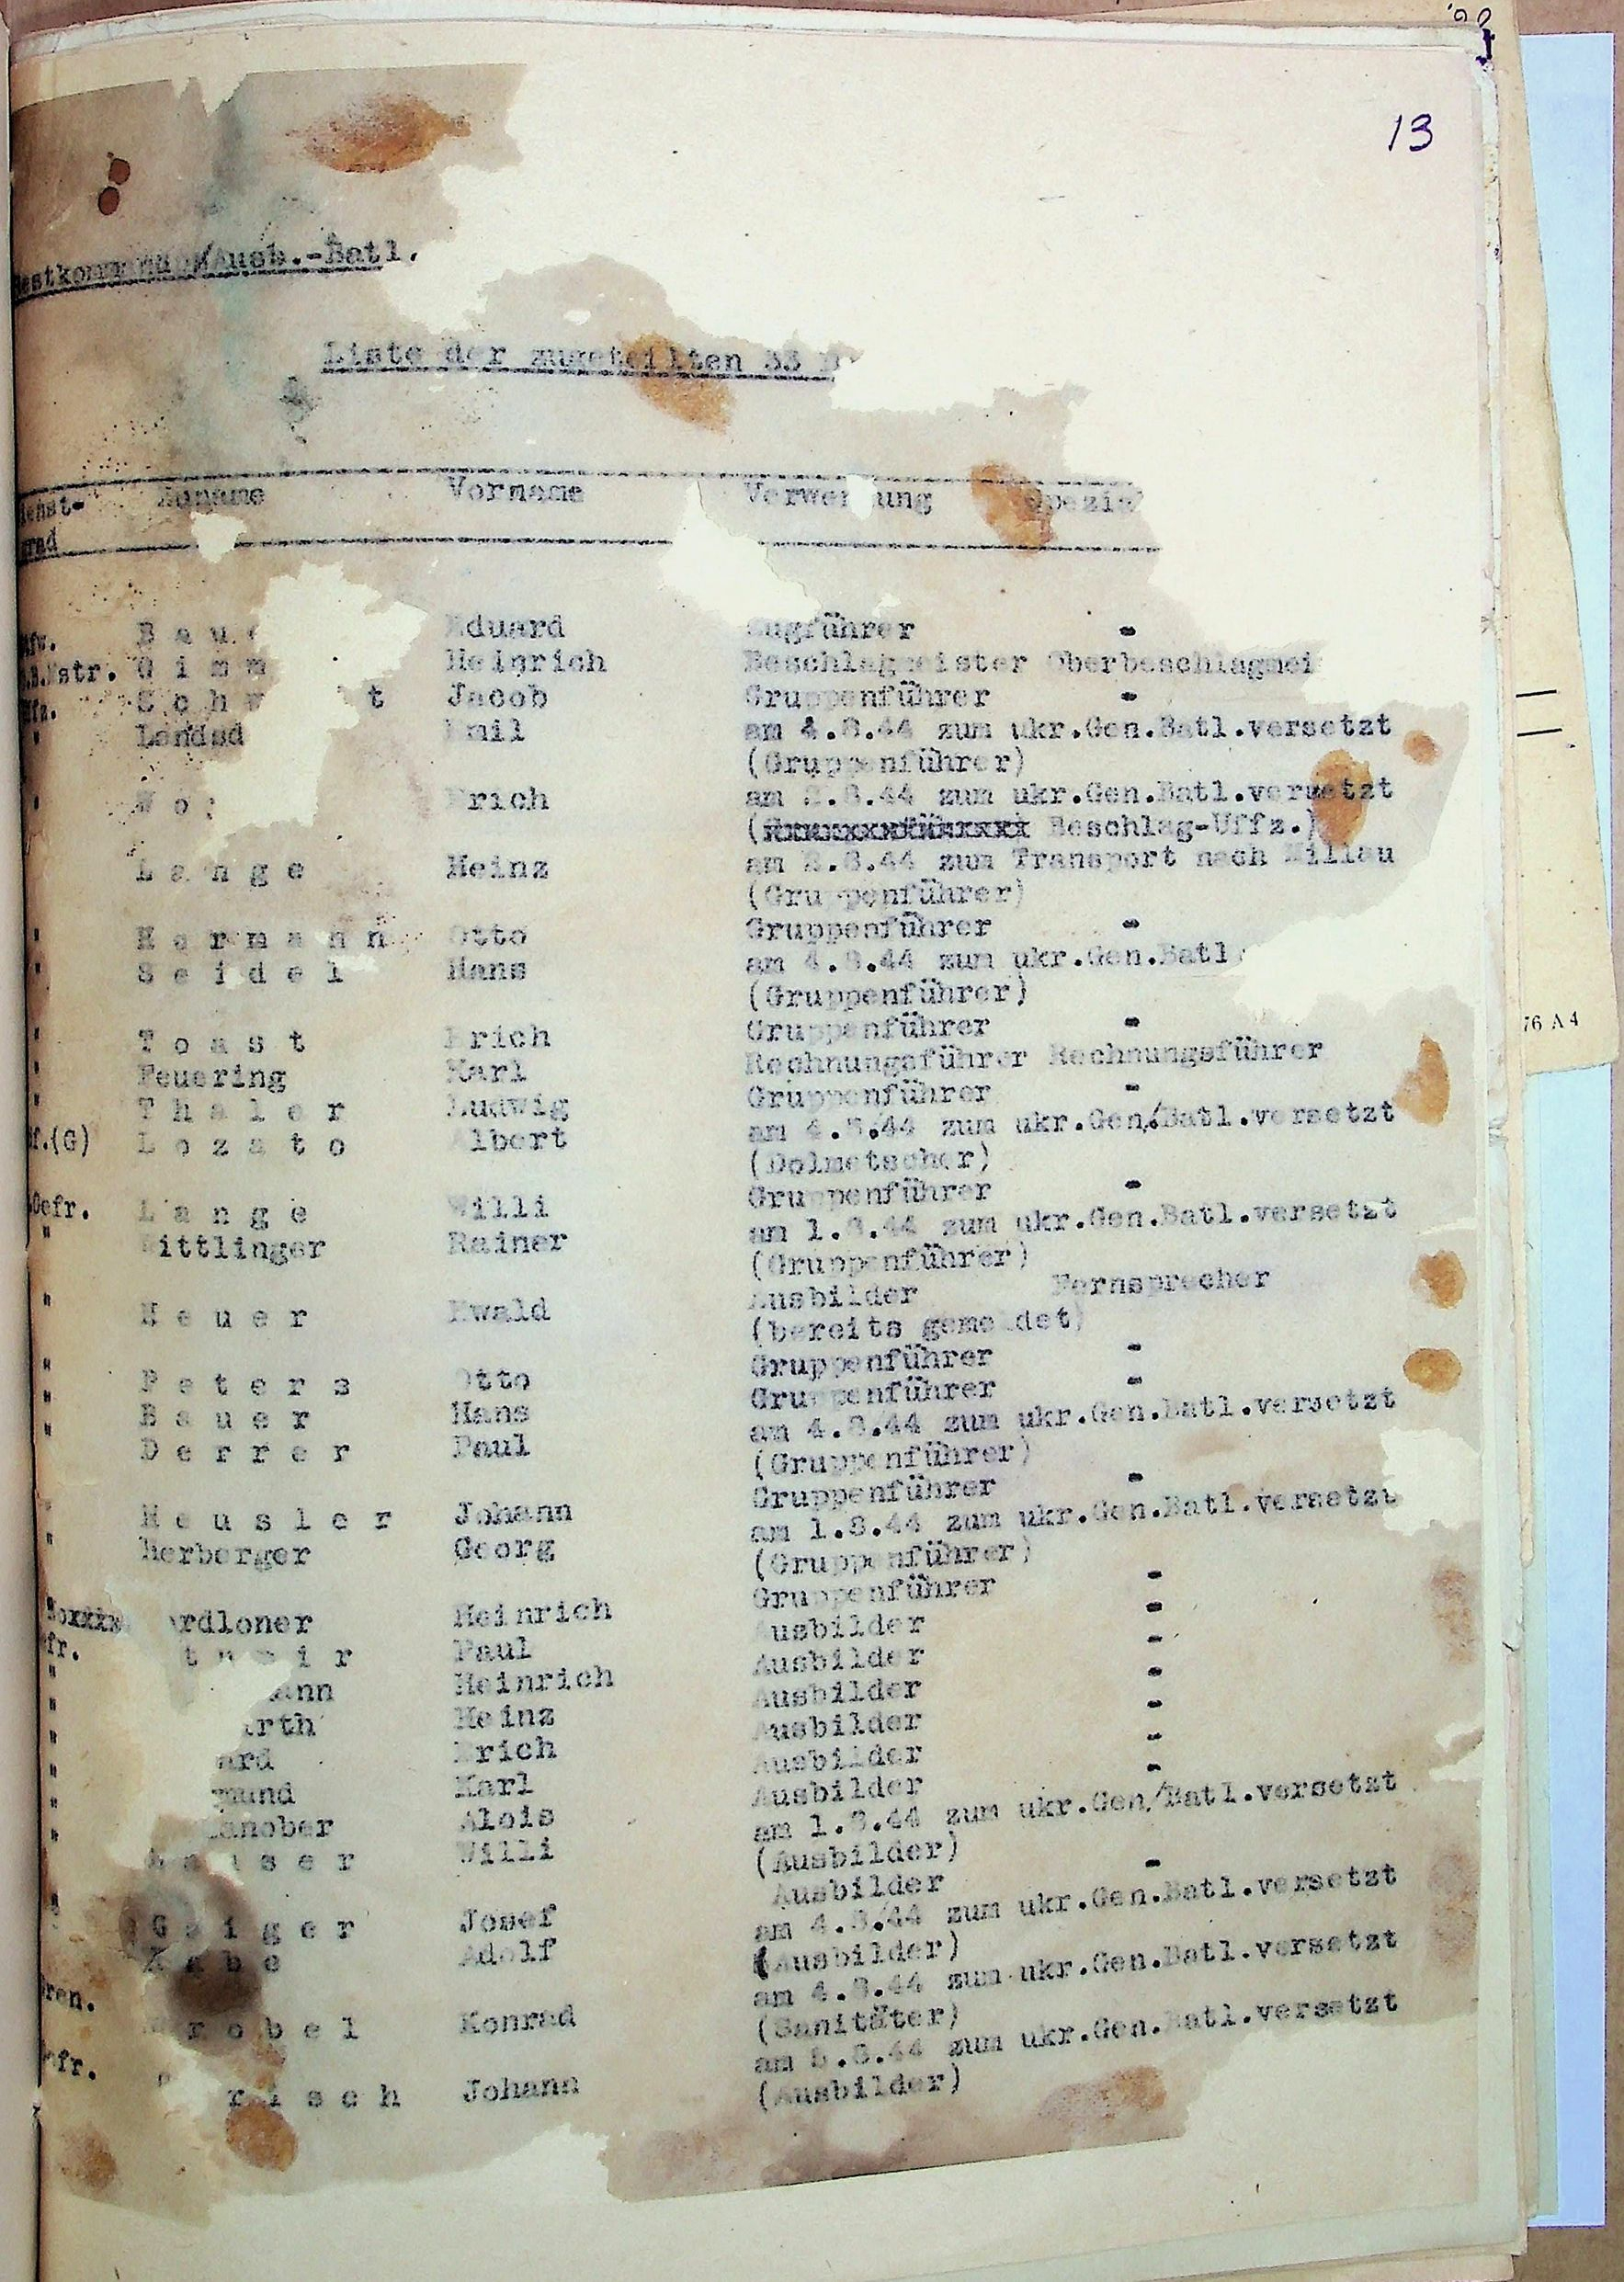 13
Ausb.-Batl.
Liste der zugeteilten 33
Zuname Vorname Verwendung
B a u Eduard Zugführer -
G i m m Heinrich Beschlagmeister Oberbeschlagmei
S c h t Jacob Gruppenführer -
" Emil am 4.8.44 zum ukr.Gen.Batl.versetzt
(Gruppenführer)
" W o Erich am 2.8.44 zum ukr.Gen.Batl.versetzt
( Beschlag-Uffz.)
L a n g e Heinz am 2.8.44 zum Transport nach Millau
(Gruppenführer)
" H e r m a n n Otto Gruppenführer -
" S e i d e l Hans am 4.8.44 zum ukr.Gen.Batl
(Gruppenführer)
" T o a s t Erich Gruppenführer -
" Feuering Karl Rechnungsführer Rechnungsführer
" T h a l e r Ludwig Gruppenführer -
f.(G) L o z a t o Albert am 4.8.44 zum ukr.Gen.Batl.versetzt
(Dolmetscher)
Gefr. L a n g e Willi Gruppenführer -
" ittlinger Rainer am 1.8.44 zum ukr.Gen.Batl.versetzt
(Gruppenführer)
" H e u e r Ewald Ausbilder Fernsprecher
(bereits gemeldet)
" P e t e r s Otto Gruppenführer -
" B a u e r Hans Gruppenführer -
" D e r r e r Paul am 4.8.44 zum ukr.Gen.Batl.versetzt
(Gruppenführer)
" H e u s l e r Johann Gruppenführer -
" herberger Georg am 1.8.44 zum ukr.Gen.Batl.versetzt
(Gruppenführer)
" ardloner Heinrich Gruppenführer -
fr. i r Paul Ausbilder -
" ann Heinrich Ausbilder -
" arth Heinz Ausbilder -
" ard Erich Ausbilder -
" mund Karl Ausbilder -
" anober Alois Ausbilder -
" s e r Willi am 1.8.44 zum ukr.Gen/Batl.versetzt
(Ausbilder)
" G e i g e r Josef Ausbilder -
" K a b e Adolf am 4.8.44 zum ukr.Gen.Batl.versetzt
(Ausbilder)
ren. r o b e l Konrad am 4.8.44 zum ukr.Gen.Batl.versetzt
(Sanitäter)
fr. r i s c h Johann am 5.8.44 zum ukr.Gen.Batl.versetzt
(Ausbilder)
76 A 4